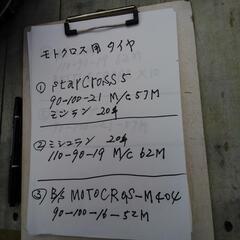 モトクロス用タイヤ
① starCross5
90-100-21 M/c 57M
ミシュラン 20年
② ミシュラン 20年
110-90-19 M/c 62M
③ B/S MOTOCROS-M404
90-100-16-52M